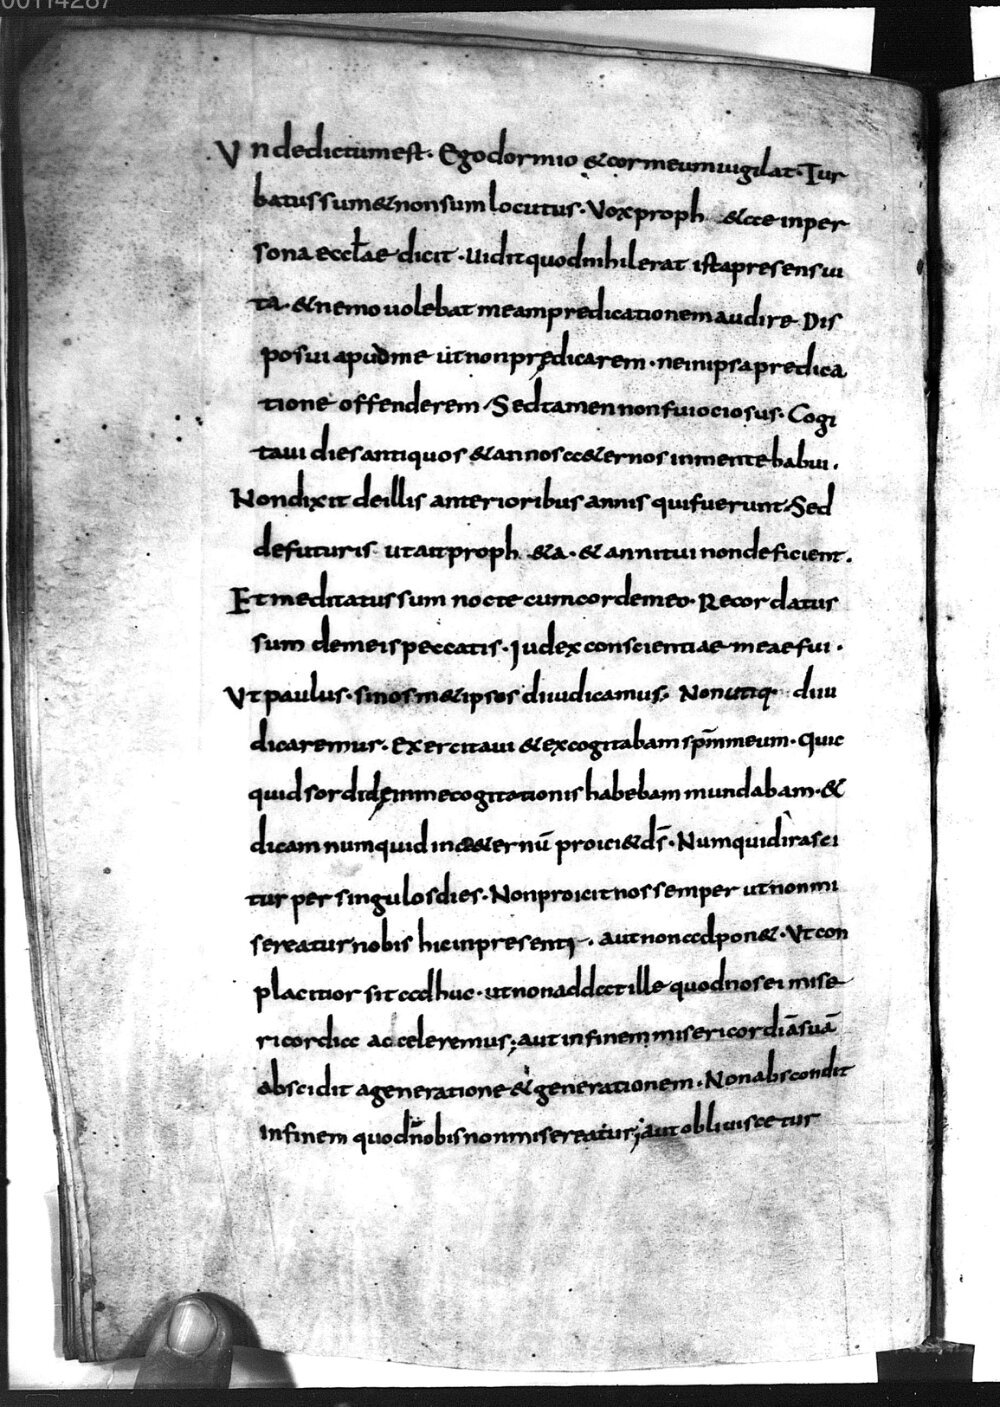 00114287
Vndedictumest· Egodormio &cormeumuigilat· Tur
batussum&nonsumlocutus· Voxproph &cce inper
sona eccłae dicit· Uiditquodnihilerat istapresensui
ta· &nemo uolebat meampredicationemaudire Dis
posui apudme ut nonprędicarem· neinipsapredica
tione offenderem Sedtamennonfuiociosus· Cogi
taui diesantiquos &annosae&ernos inmentehabui·
Nondixit deillis anterioribus annis quifuerunt· Sed
defuturis utaitproph &a· & annitui nondeficient·
Etmeditatussum nocte cumcordemeo· Recordatus
sum demeispeccatis· Iudexconscientiae meaefui·
Vtpaulus· sinosm&ipsos diiudicamus· Nonutiq· diiu
dicaremus· exercitaui &excogitabam sp̄mmeum· quic
quidsordidęinmecogitationishabebam mundabam· &
dicam numquid inae&ernū proici&d̄s· Numquidirasci
tur per singulosdies· Nonproicitnossemper utnonmi
sereaturnobis hicinpresenti· autnonadpon&· Vtcon
placitior sit adhuc· utnonaddat ille quodnosei mise
ricordia acceleremus; aut infinem misericordiāsuā
abscidit ageneratione &generationem· Nonabscondit
Infinem quodnobisnonmisereatur; aut obliuiscetur